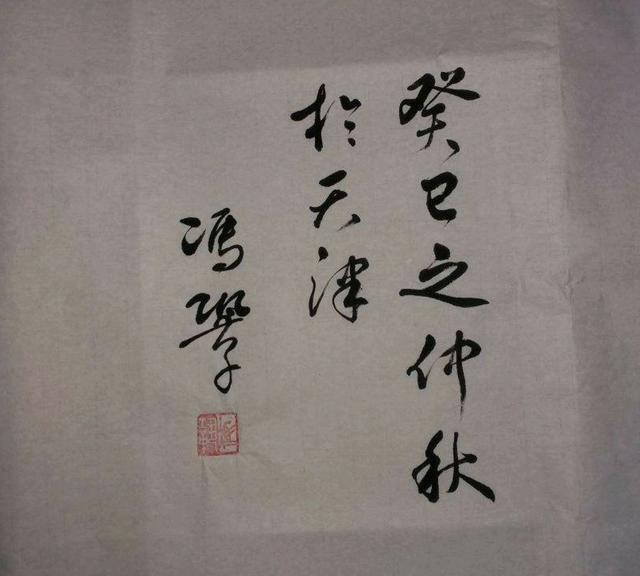 癸巳之仲秋
於天津
馮學